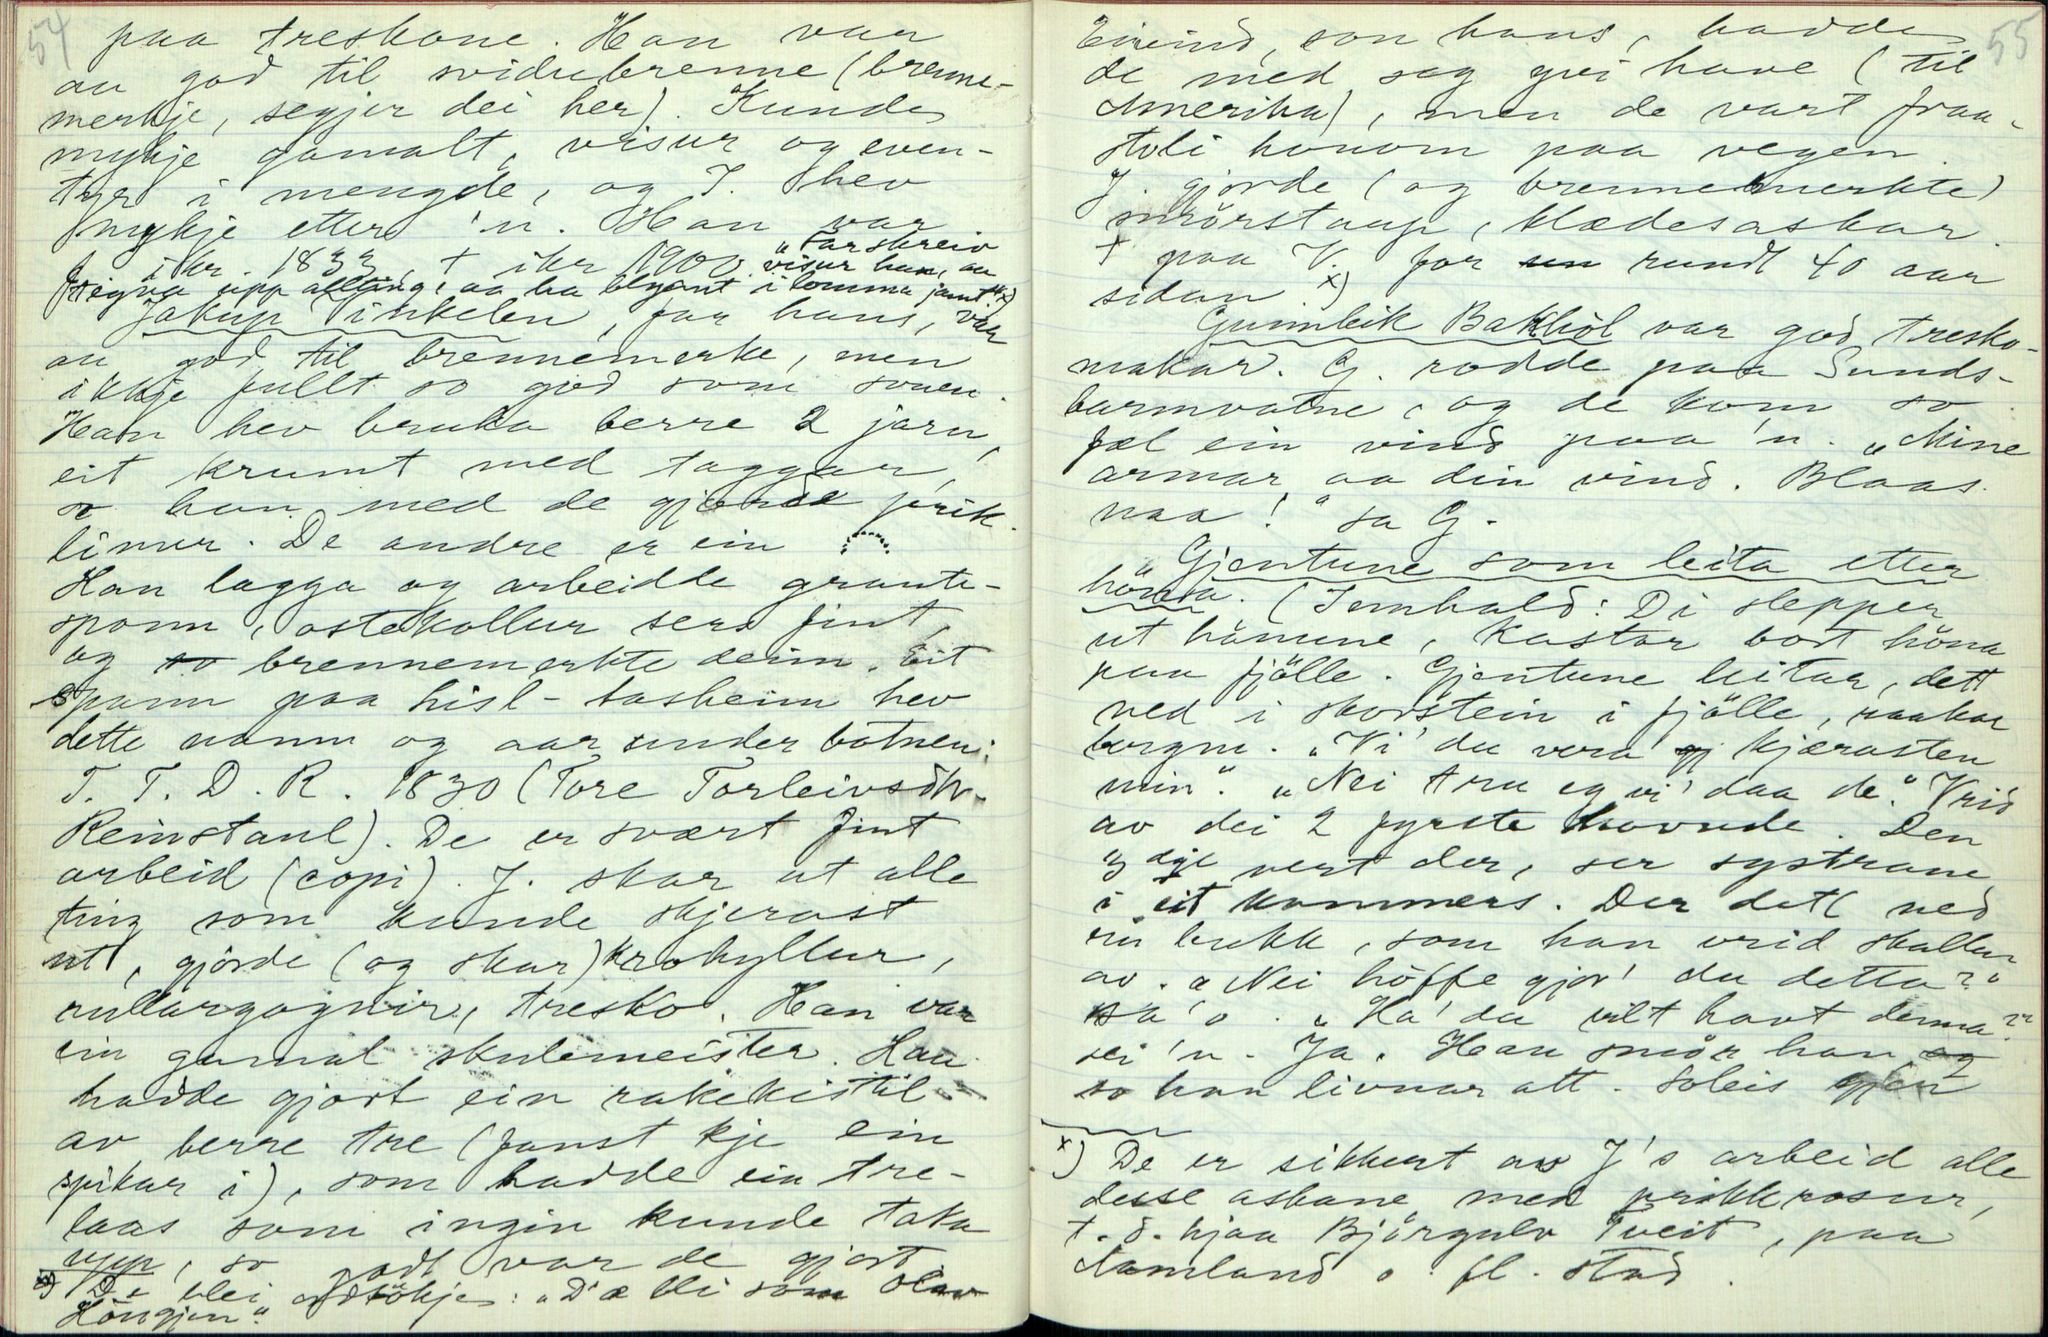 54
paa treskone. Han var
au god til svidubrenne (brenne-
merkje, segjer dei her). Kunde
mykje gamalt, visur og even-
tyr i mengde, og J. hev
mykje etter 'n. Han var
f. ikr. 1833, † ikr 1900. "Far skreiv
visur han, au
upp allting, aa ha blyant i lomma jamt." x)
Jakup Vinkelen, far hans, var
au god til brennemerke, men
ikkje fullt so god som sonen.
Han hev bruka berre 2 jarn,
eit krumt med taggar,
so han med de gjorde prik-
limer. De andre er ein
Han lagga og arbeidde graute-
spann, ostekollur sers fint,
og so brennemerkte deim. Eit
spann paa hisl-Aasheim hev
dette namn og aar under botnen:
T. T. D. R. 1830 (Tore Torleivsdtr.
Reinstaul). De er svært fint
arbeid (copi). J. skar ut alle
ting som kunde skjerast
ut, gjorde (og skar) krohyllur,
rullargognir, tresko. Han var
ein gamal skulemeister. Han
hadde gjort ein rakekistil
av berre tre (fanst kje ein
spikar i), som hadde ein tre-
laas som ingin kunde taka
upp, so godt var de gjort.
x) De blei ordtökje: "D'æ bli som Olav
Höngjen".
55
Eivind, son hans, hadde
de med seg yvi have (til
Amerika), men de vart fraa-
stoli honom paa vegen.
J. gjorde (og brennemerkte)
smörstaup, klædesaskar.
† paa V. for rundt 40 aar
sidan x)
Gunnleik Bakhöl var god tresko-
makar. G. rodde paa Sunds-
barmvatne, og de kom so
fæl ein vind paa 'n. "Mine
armar aa din vind. Blaas
naa!" sa G.
"Gjentune som leita etter
höna. (Innhald: Di slepper
ut hönune, kastar bort höna
paa fjölle. Gjentune leitar, dett
ned i skorstein i fjölle, raakar
bergm. "Vi' du vera kjærasten
min". "Nei tru eg vi' daa de". Vrid
av dei 2 fyrste hovude. Den
3dje vert der, ser systrane
i eit kammers. Der dett ned
ein bukk, som han vrid skallen
av. "Nei höffe gjor' du detta?"
sa 'o. "Ha' du vilt havt denna?"
sei 'n. Ja. Han smör han
so han livnar att. Soleis gjer
x) De er sikkert av J's arbeid alle
desse askane med prikkrosur,
t. d. hjaa Björgulv Tveit, paa
Aamland o. fl. stad.